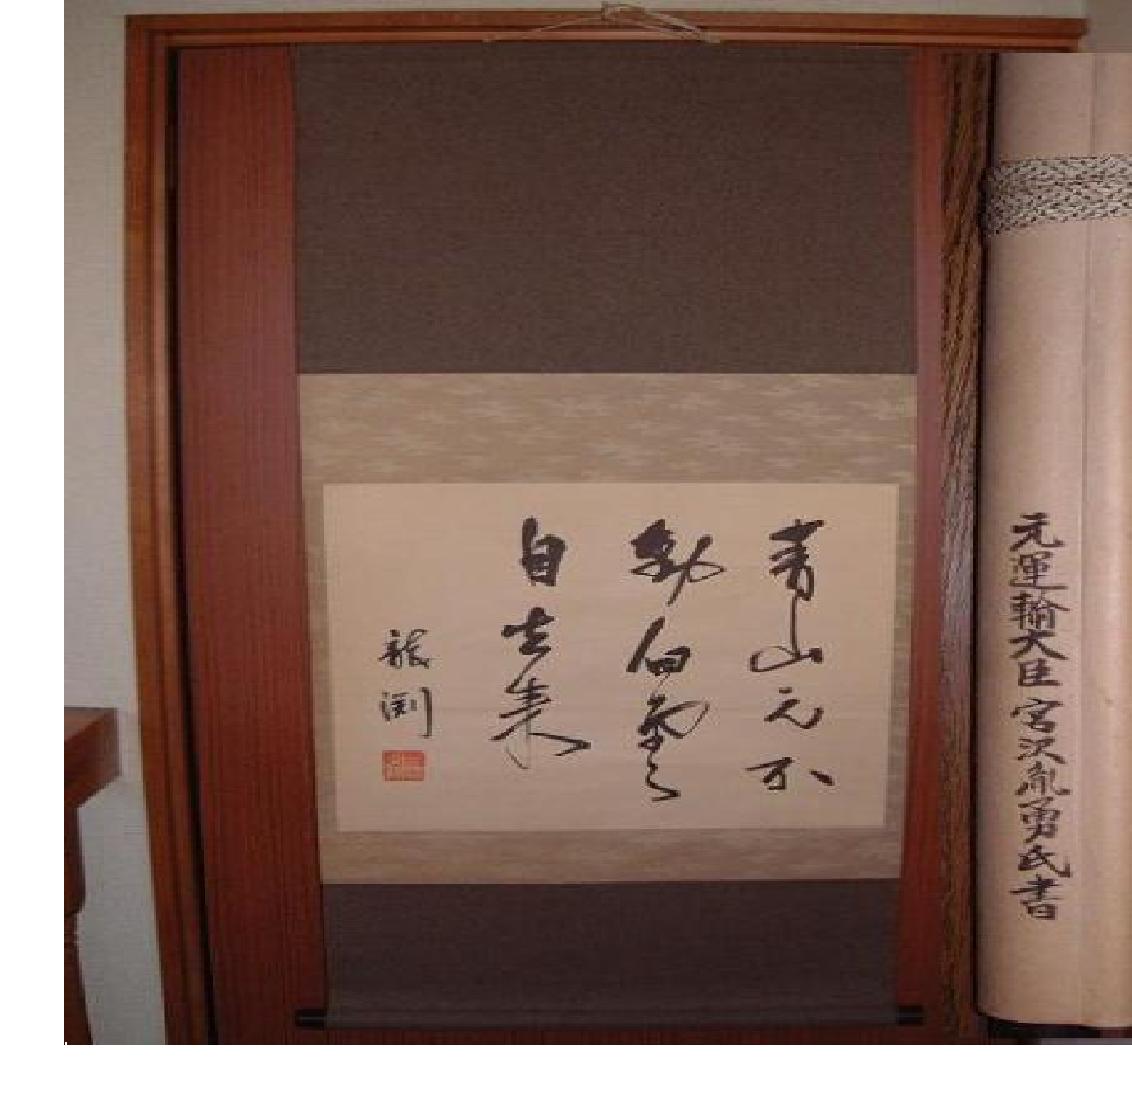 青山元不
動白雲
自去来
龍渕
元運輸大臣宮沢胤勇氏書